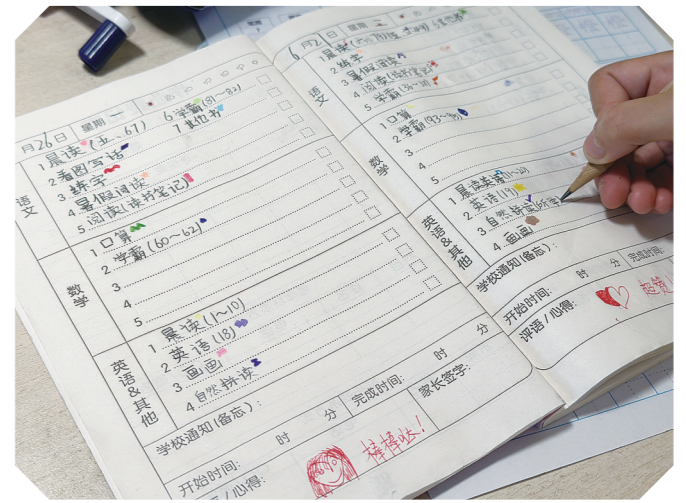 月26日 星期一
语文
1 晨读(五、67)
2 看图写话
3 练字
4 暑假阅读
5 阅读(读书笔记)
6 学霸(81~82)
7 其他书
数学
1 口算
2 学霸(60~62)
3
4
5
英语&其他
1 晨读(1~10)
2 英语(18)
3 画画
4 自然拼读
学校通知(备忘):
开始时间: 时 分 完成时间: 时 分
评语/心得: 棒棒哒! 家长签字:
6月2日 星期
语文
1 晨读
2 练字
3 暑假阅读
4 阅读(读书笔记)
5 学霸
数学
1 口算
2 学霸
3
4
5
英语&其他
1 晨读英语
2 英语(19)
3 自然拼读
4 画画
学校通知(备忘):
开始时间: 时 分 完成时间:
评语/心得: 超赞